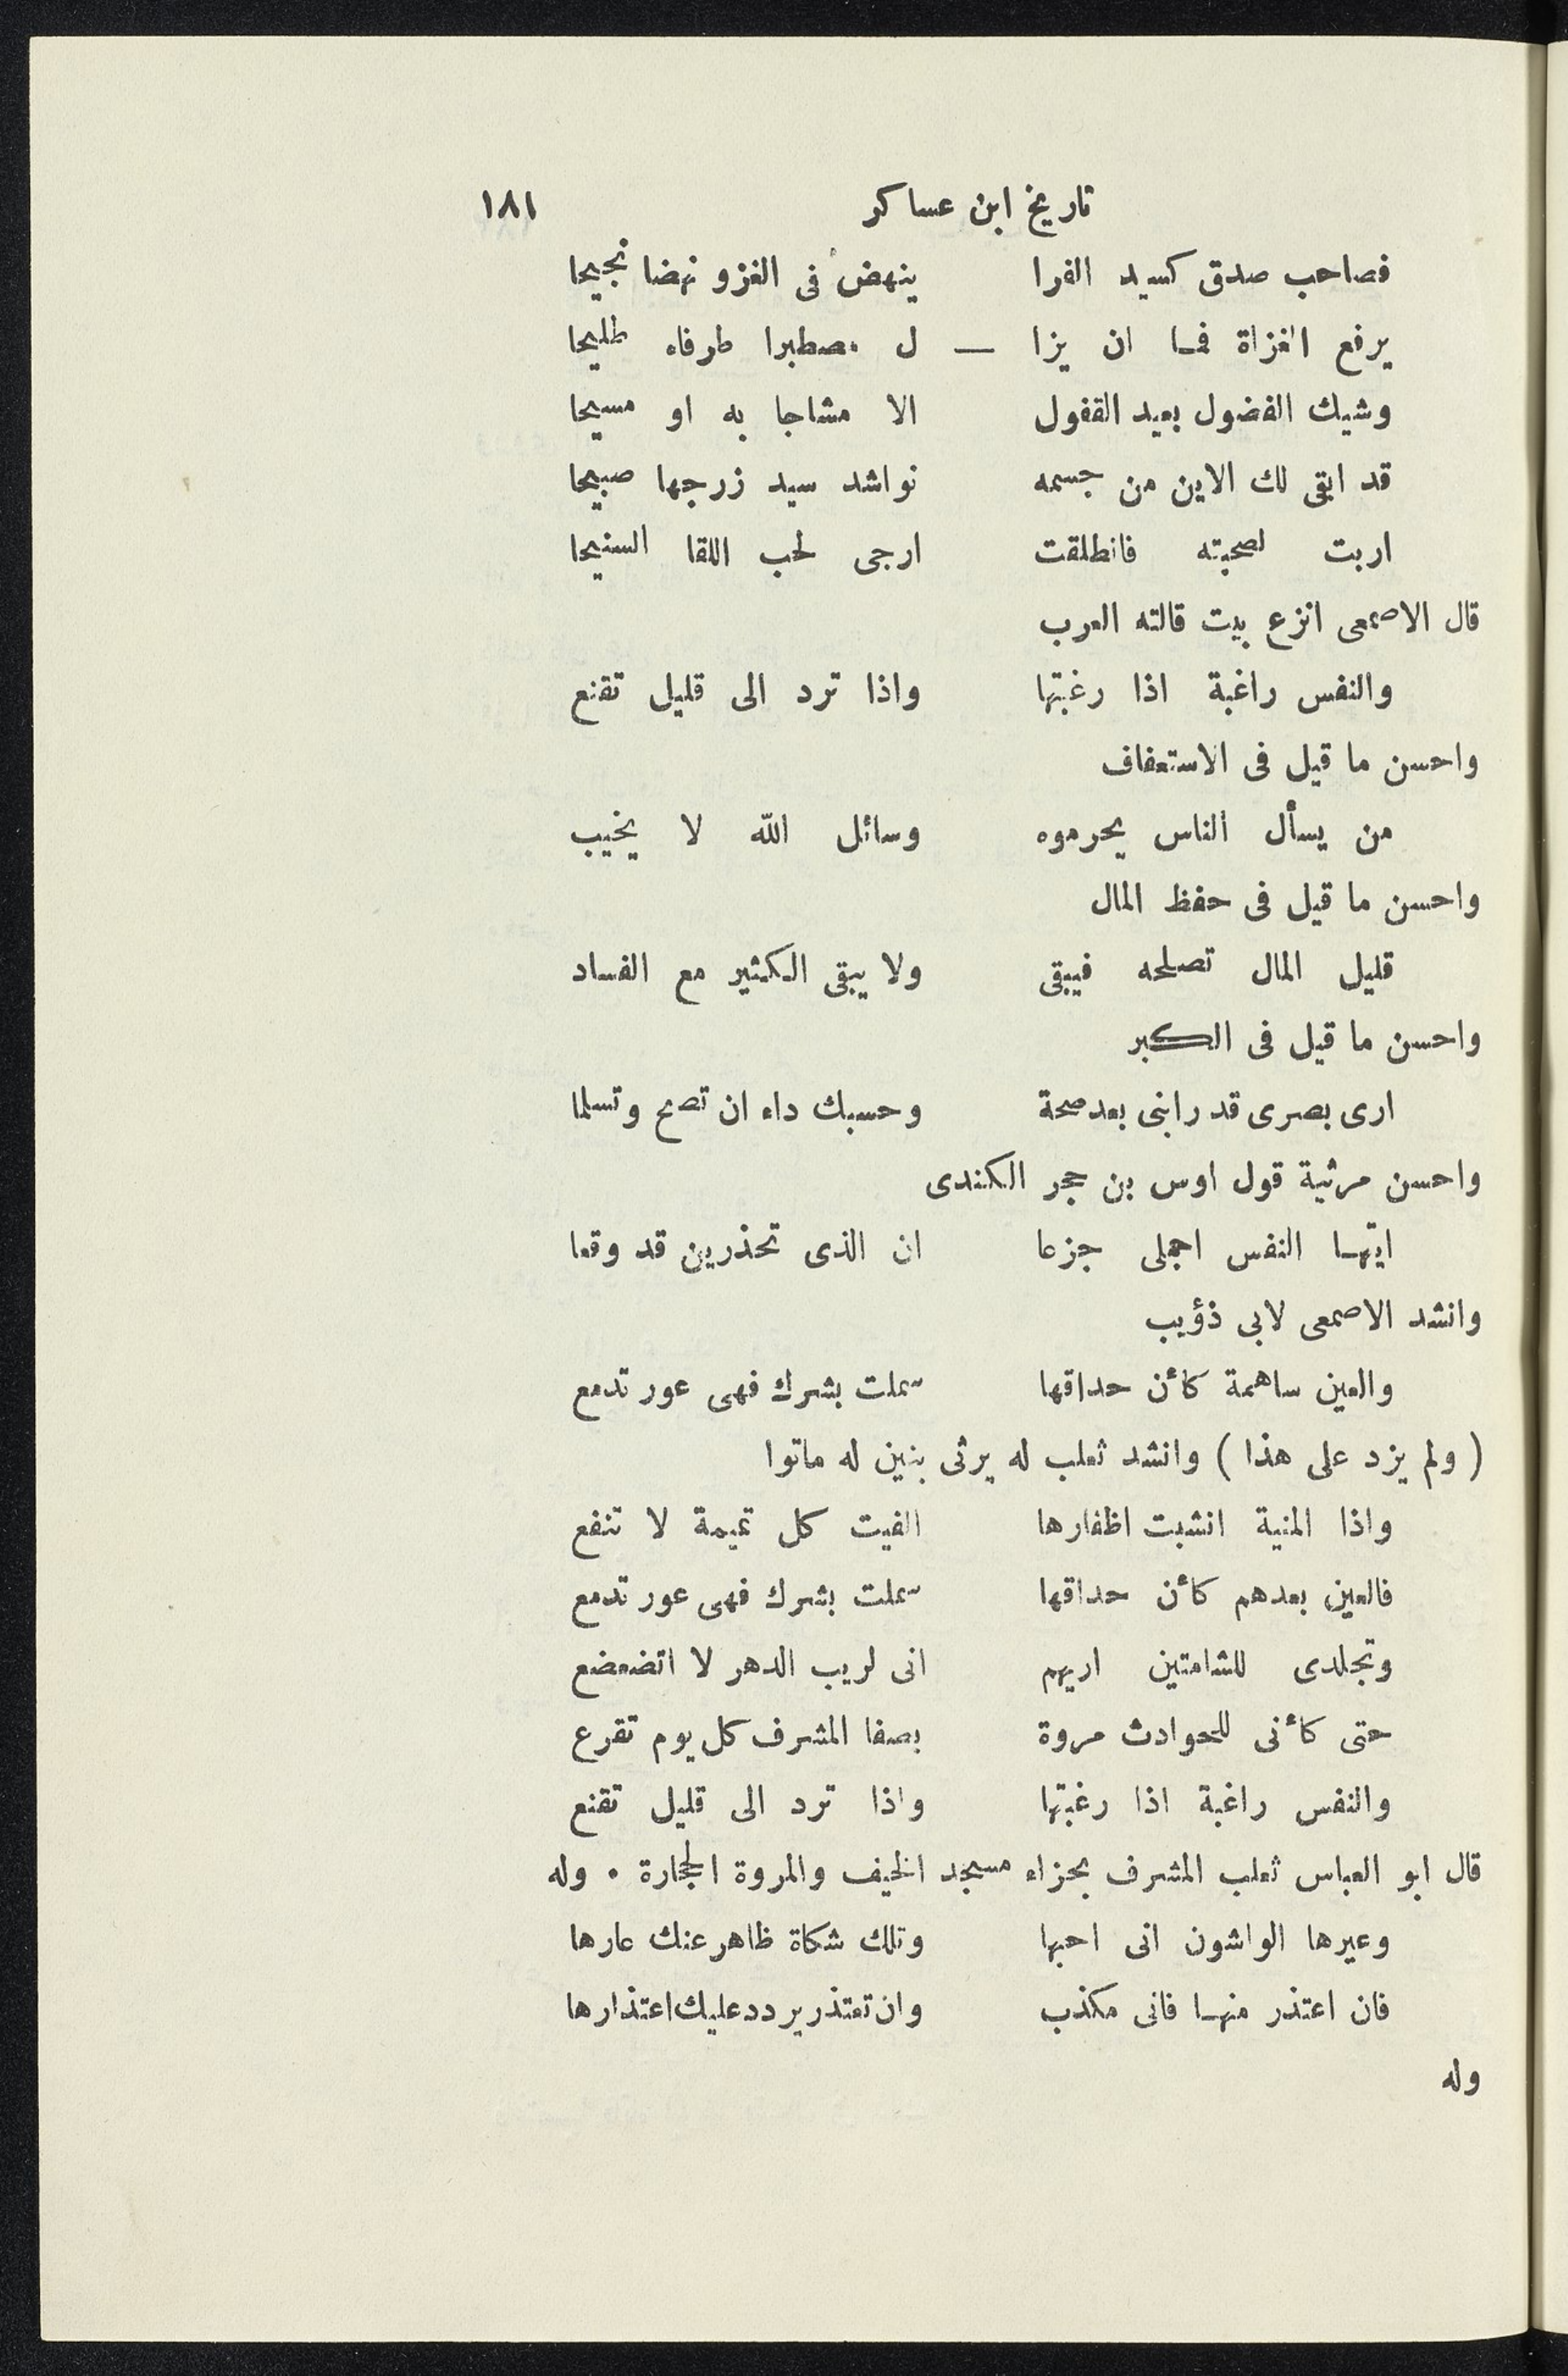 تاريخ ابن عساكر ١٨١
فصاحب صدق كسيد الفرا ينهض فى الغزو نهضا نجيحا
يرفع الغزاة فما ان يزا — ل مصطبرا طرفاه طليحا
وشيك الفضول بعيد القفول الا مشاجا به او مسيحا
قد ابقى لك الاين من جسمه نواشد سيد زرجها صبيحا
اربت لصحبته فانطلقت ارجى لحب اللقا السنيحا
قال الاصمعى انزع بيت قالته العرب
والنفس راغبة اذا رغبتها واذا ترد الى قليل تقنع
واحسن ما قيل فى الاستعفاف
من يسأل الناس يحرموه وسائل الله لا يخيب
واحسن ما قيل فى حفظ المال
قليل المال تصلحه فيبقى ولا يبقى الكثير مع الفساد
واحسن ما قيل فى الكبر
ارى بصرى قد رابنى بعد صحة وحسبك داء ان تصح وتسلما
واحسن مرثية قول اوس بن حجر الكندى
ايتها النفس اجملى جزعا ان الذى تحذرين قد وقعا
وانشد الاصمعى لابى ذؤيب
والعين ساهمة كأن حداقها سملت بشرك فهى عور تدمع
( ولم يزد على هذا ) وانشد ثعلب له يرثى بنين له ماتوا
واذا المنية انشبت اظفارها الفيت كل تميمة لا تنفع
فالعين بعدهم كأن حداقها سملت بشرك فهى عور تدمع
وتجلدى للشامتين اريهم انى لريب الدهر لا اتضعضع
حتى كأنى للحوادث مروة بصفا المشرف كل يوم تقرع
والنفس راغبة اذا رغبتها واذا ترد الى قليل تقنع
قال ابو العباس ثعلب المشرف بحزاء مسجد الخيف والمروة الحجارة . وله
وعيرها الواشون انى احبها وتلك شكاة ظاهر عنك عارها
فان اعتذر منها فانى مكذب وان تعتذر يردد عليك اعتذارها
وله